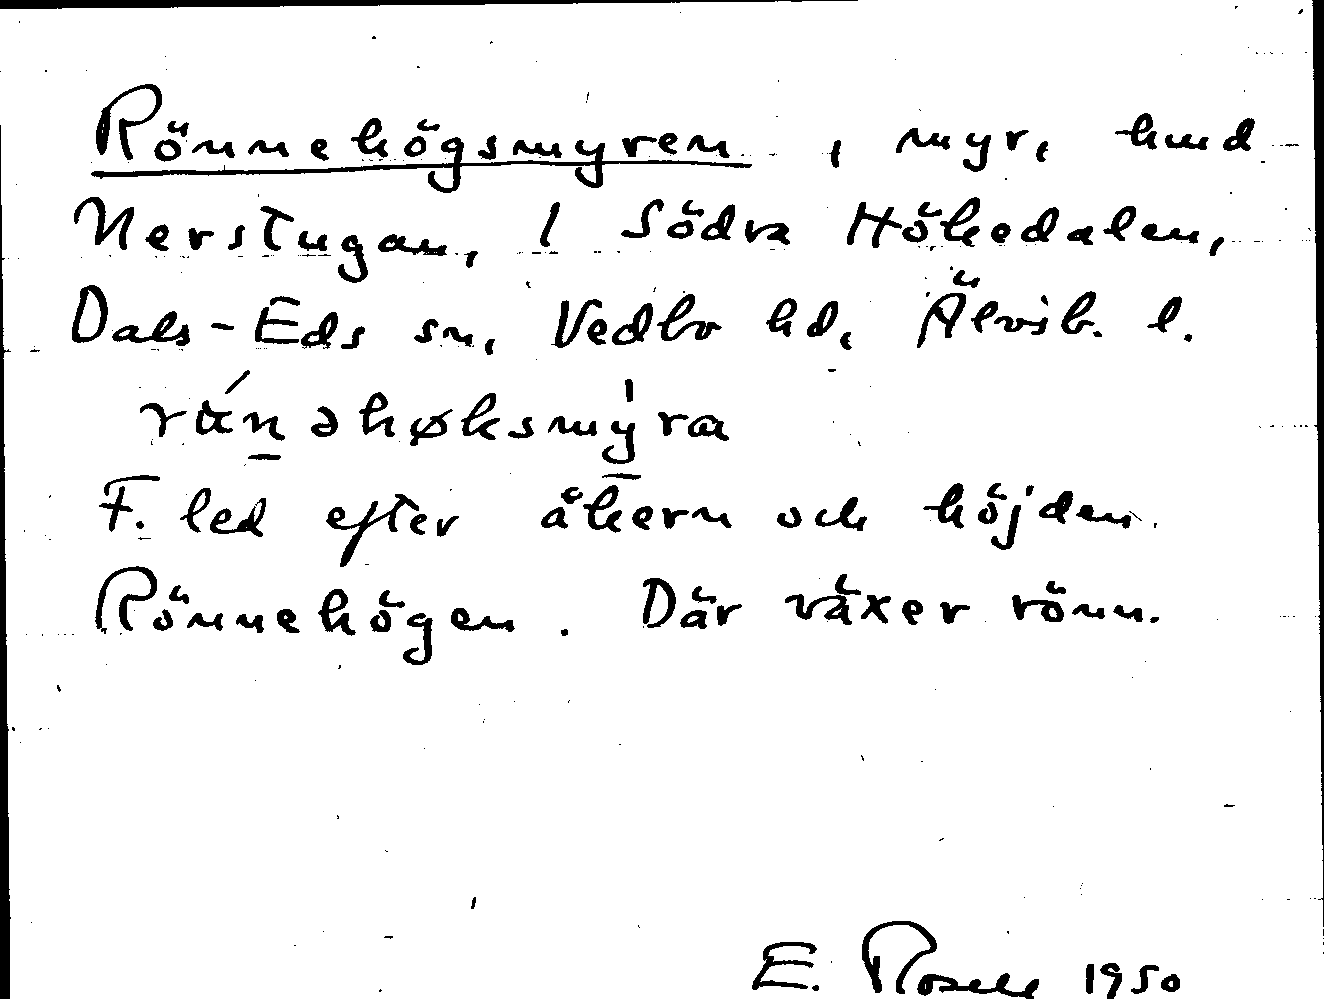 Rönnehögsmyren, myr, hmd
Nerstugan, 1 Södra Hökedalen,
Dals-Eds sn, Vedbo hd, Älvsb. l.
rǘn̲əhøksmy̲̍ra
F. led efter åkern och höjden
Rönnehögen. Där växer rönn.
E. Rosell 1950